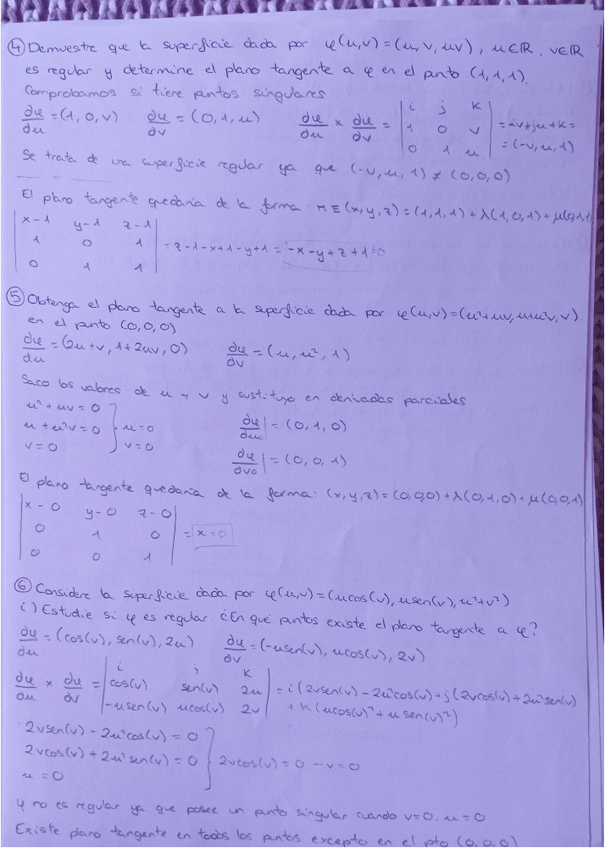 ④ Demuestre que la superficie dada por φ(u,v)=(u,v,uv), u∈ℝ, v∈ℝ
es regular y determine el plano tangente a φ en el punto (1,1,1).
Comprobamos si tiene puntos singulares
∂φ/∂u = (1,0,v)  ∂φ/∂v = (0,1,u)  ∂φ/∂u × ∂φ/∂v = | i j k | 1 0 v | 0 1 u | = -iv+ju+k =
= (-v,u,1)
Se trata de una superficie regular ya que (-v,u,1) ≠ (0,0,0)
El plano tangente quedaría de la forma: π ≡ (x,y,z) = (1,1,1) + λ(1,0,1) + μ(0,1,1)
| x-1 y-1 z-1 | 1 0 1 | 0 1 1 | = z-1-x+1-y+1 = -x-y+z+1=0
⑤ Obtenga el plano tangente a la superficie dada por φ(u,v)=(u²+uv, u+u²v, v)
en el punto (0,0,0)
∂φ/∂u = (2u+v, 1+2uv, 0)  ∂φ/∂v = (u, u², 1)
Saco los valores de u y v y sustituyo en derivadas parciales
u²+uv=0
u+u²v=0 } u=0  ∂φ/∂u₀ = (0,1,0)
v=0  v=0
∂φ/∂v₀ = (0,0,1)
El plano tangente quedaría de la forma: (x,y,z) = (0,0,0) + λ(0,1,0) + μ(0,0,1)
| x-0 y-0 z-0 | 0 1 0 | 0 0 1 | = x=0
⑥ Considere la superficie dada por φ(u,v)=(ucos(v), usen(v), u²+v²)
i) Estudie si φ es regular. ¿En qué puntos existe el plano tangente a φ?
∂φ/∂u = (cos(v), sen(v), 2u)  ∂φ/∂v = (-usen(v), ucos(v), 2v)
∂φ/∂u × ∂φ/∂v = | i j k | cos(v) sen(v) 2u | -usen(v) ucos(v) 2v | = i(2vsen(v) - 2u²cos(v)) - j(2vcos(v) + 2u²sen(v)
+ k(ucos(v)² + usen(v)²)
2vsen(v) - 2u²cos(v) = 0
2vcos(v) + 2u²sen(v) = 0 } 2vcos(v) = 0 → v=0
u=0
φ no es regular ya que posee un punto singular cuando v=0, u=0
Existe plano tangente en todos los puntos excepto en el pto (0,0,0)